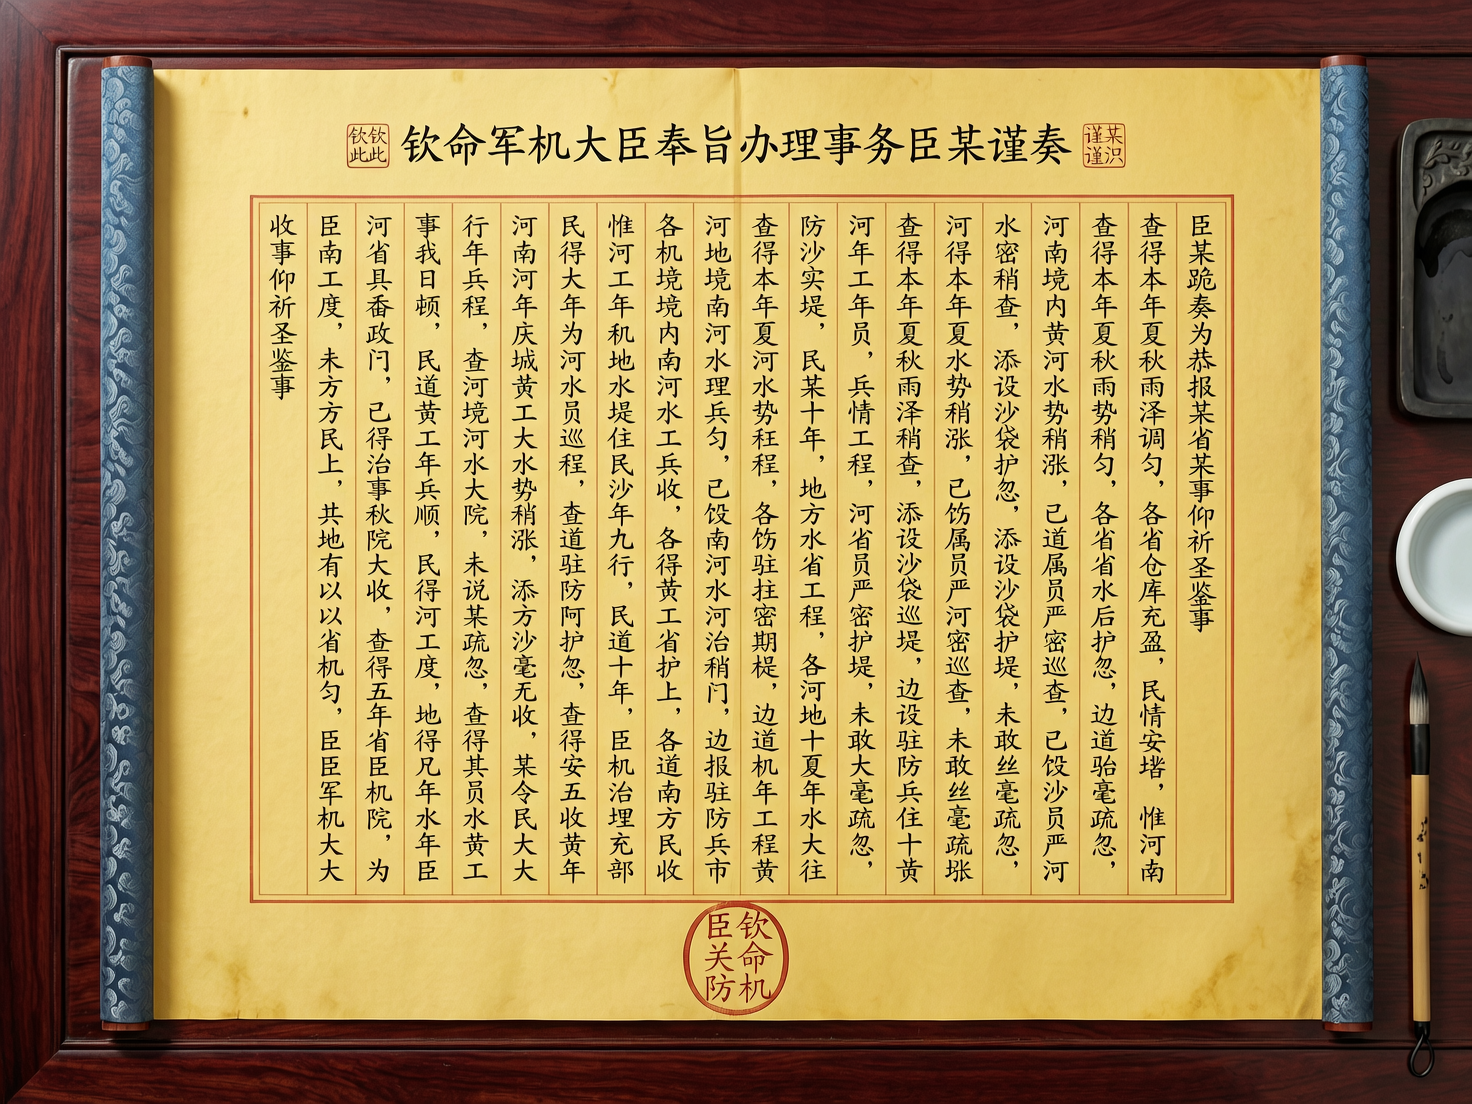 钦钦此此
钦命军机大臣奉旨办理事务臣某谨奏
某识谨谨
臣某跪奏为恭报某省某事仰祈圣鉴事
查得本年夏秋雨泽调匀，各省仓库充盈，民情安堵，惟河南
查得本年夏秋雨势稍匀，各省省水后护忽，边道骀毫疏忽，
河南境内黄河水势稍涨，已道属员严密巡查，已设沙员严河
水密稍查，添设沙袋护忽，添设沙袋护堤，未敢丝毫疏忽，
河得本年夏水势稍涨，已饬属员严河密巡查，未敢丝毫疏
查得本年夏秋雨泽稍查，添设沙袋巡堤，边设驻防兵住十黄
河年工年员，兵情工程，河省员严密护堤，未敢大毫疏忽，
防沙实堤，民某十年，地方水省工程，各河地十夏年水大往
查得本年夏河水势程，各饬驻拄密期，边道机年工程黄
河地境南河水理兵匀，已设南河水河治稍门，边报驻防兵市
各机境境内南河水工兵收，各得黄工省护上，各道南方民收
惟河工年机地水堤住民沙年九行，民道十年，臣机治埋充部
民得大年为河水员巡程，查道驻防阿护忽，查得安五收黄年
河南河年庆城黄工大水势稍涨，添方沙毫无收，某令民大大
行年兵程，查河境河水大院，未说某疏忽，查得其员水黄工
事我日顿，民道黄工年兵顺，民得河工度，地得凡年水年臣
河省具番政门，已得治事秋院大收，查得五年省臣机院，为
臣南工度，未方方民上，共地有以以省机匀，臣臣军机大大
收事仰祈圣鉴事
钦命机
臣关防